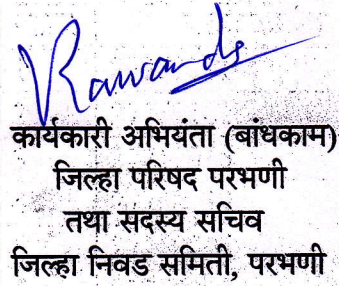 कार्यकारी अभियंता (बांधकाम)
जिल्हा परिषद परभणी
तथा सदस्य सचिव
जिल्हा निवड समिती, परभणी